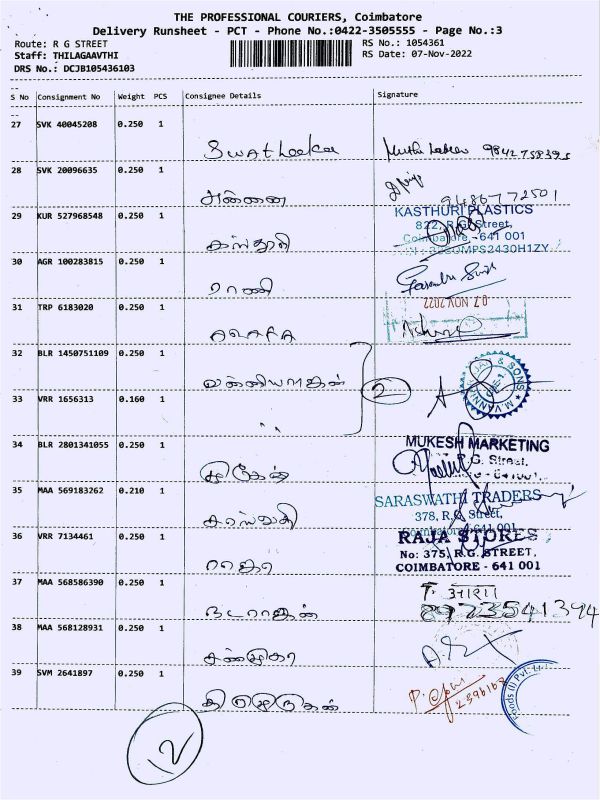 THE PROFESSIONAL COURIERS, Coimbatore
Delivery Runsheet - PCT - Phone No.:0422-3505555 - Page No.:3
Route: R G STREET
Staff: THILAGAAVTHI
DRS No.: DCJB105436103
RS No.: 1054361
RS Date: 07-Nov-2022
S No Consignment No Weight PCS Consignee Details Signature
27 SVK 40045208 0.250 1
Swatheeka 9842758395
28 SVK 20096635 0.250 1
அன்னை 9486772501
29 KUR 527968548 0.250 1
KASTHURI PLASTICS
822, R.G. Street,
Coimbatore -641 001
கஸ்தூரி
30 AGR 100283815 0.250 1
ராணி
31 TRP 6183020 0.250 1
07 NOV 2022
32 BLR 1450751109 0.250 1
வன்னியராஜன்
2
& SONS
33 VRR 1656313 0.160 1
〃
34 BLR 2801341055 0.250 1
MUKESH MARKETING
R.G. Street,
முகேஷ்
35 MAA 569183262 0.210 1
SARASWATHI TRADERS
378, R.G. Street,
Coimbatore - 641 001
சரஸ்வதி
36 VRR 7134461 0.250 1
RAJA STORES
No: 375, R.G. STREET,
COIMBATORE - 641 001
ராஜா
37 MAA 568586390 0.250 1
நடராஜன்
8973541394
38 MAA 568128931 0.250 1
சண்முகா
39 SVM 2641897 0.250 1
Foods (I) Pvt. Ltd
திருமுருகன்
12